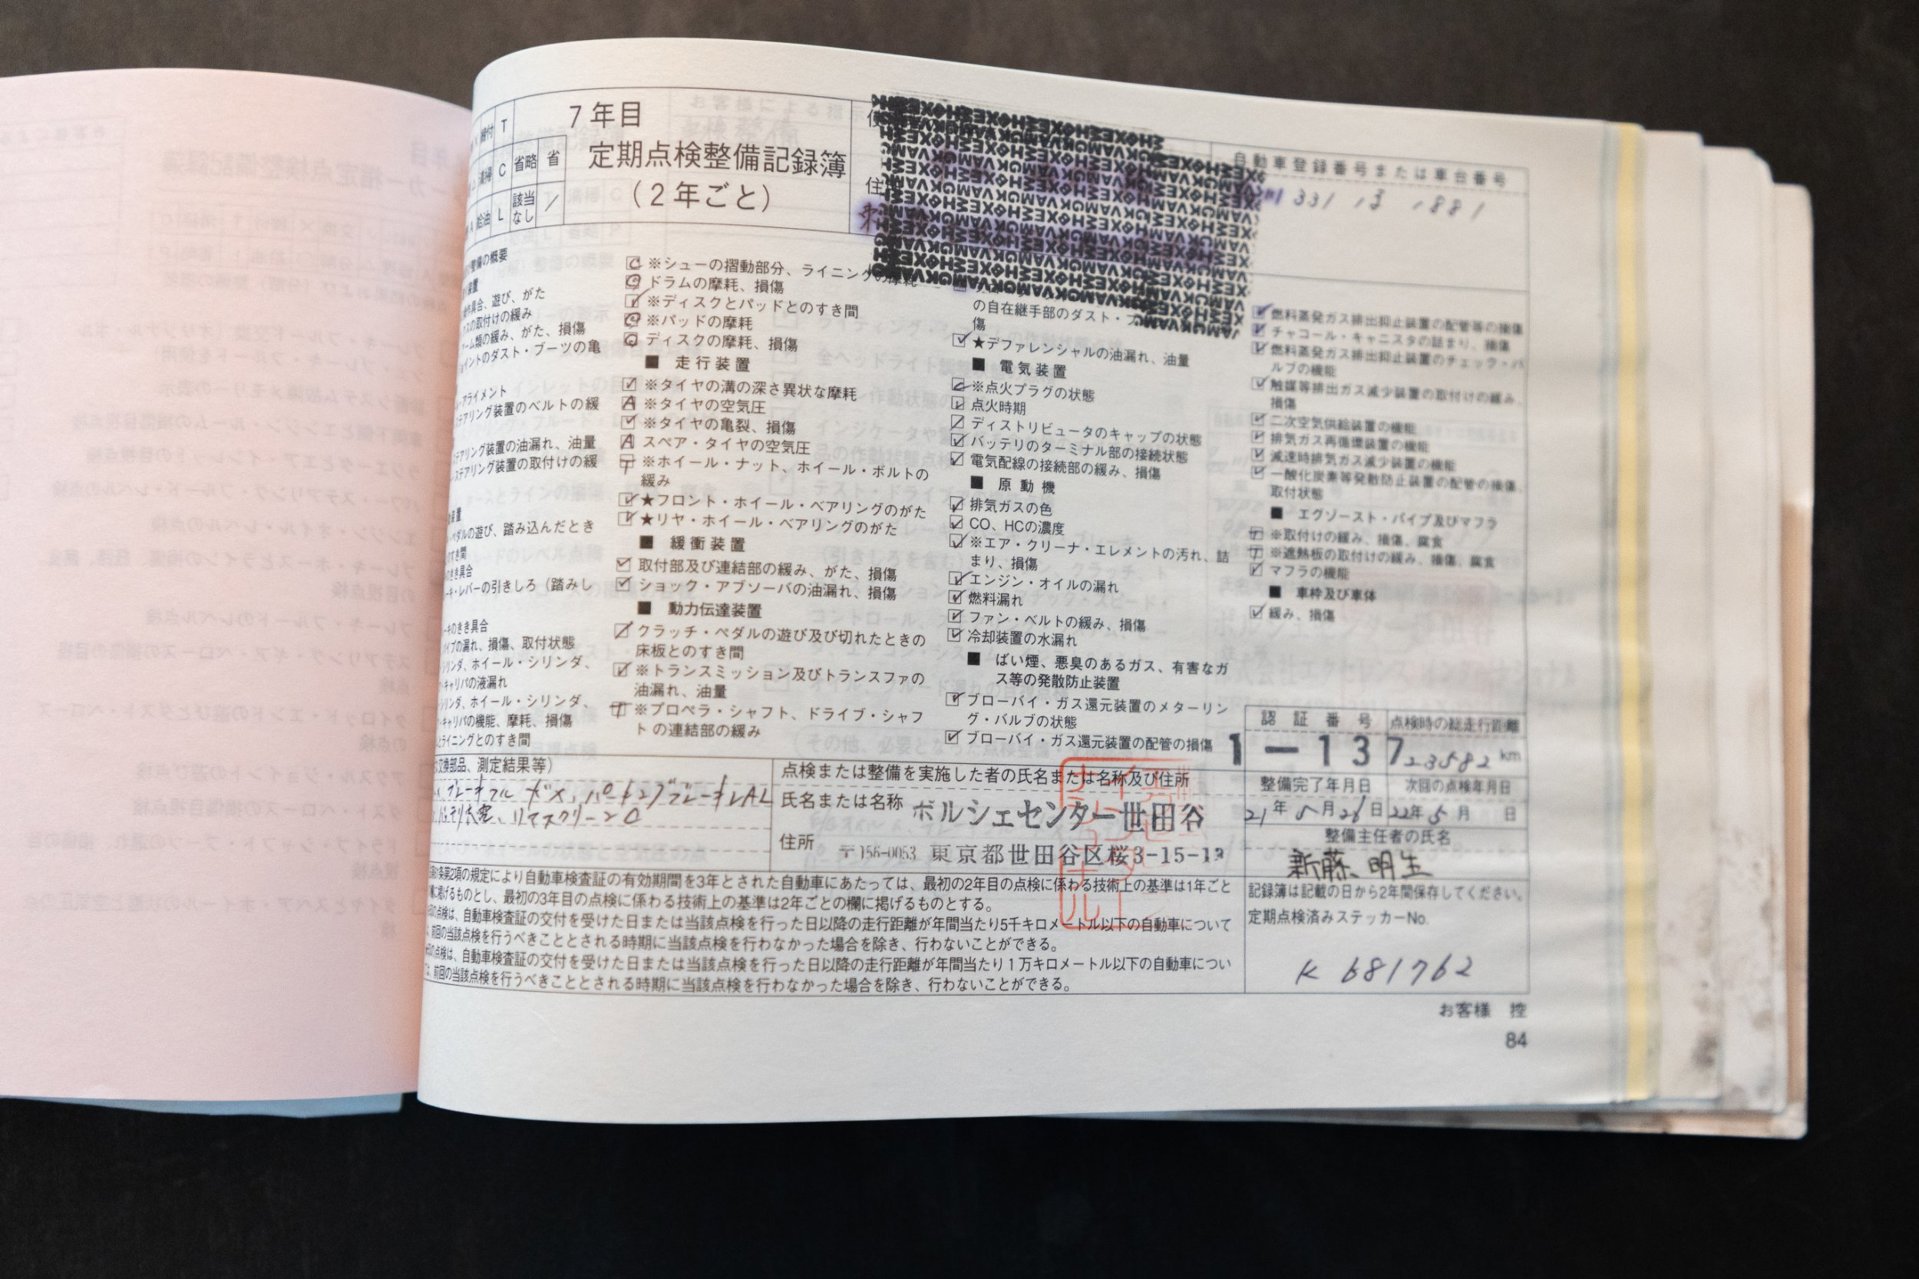 7年目
定期点検整備記録簿
(2年ごと)
付 T
C 省略 省
給油 L 該当なし /
自動車登録番号または車台番号
331 1881
整備の概要
具合、遊び、がた
の取付けの緩み
ーム類の緩み、がた、損傷
イントのダスト・ブーツの亀
ライメント
テアリング装置のベルトの緩
テアリング装置の油漏れ、油量
テアリング装置の取付けの緩
ペダルの遊び、踏み込んだとき
すき間
きき具合
キ・レバーの引きしろ(踏みし
ーキのきき具合
イプの漏れ、損傷、取付状態
シリンダ、ホイール・シリンダ、
キャリパの液漏れ
シリンダ、ホイール・シリンダ、
キャリパの機能、摩耗、損傷
とライニングとのすき間
※シューの摺動部分、ライニング
ドラムの摩耗、損傷
※ディスクとパッドとのすき間
※パッドの摩耗
ディスクの摩耗、損傷
■ 走行装置
※タイヤの溝の深さ異状な摩耗
A ※タイヤの空気圧
※タイヤの亀裂、損傷
A スペア・タイヤの空気圧
T ※ホイール・ナット、ホイール・ボルトの
緩み
★フロント・ホイール・ベアリングのがた
★リヤ・ホイール・ベアリングのがた
■ 緩衝装置
取付部及び連結部の緩み、がた、損傷
ショック・アブソーバの油漏れ、損傷
■ 動力伝達装置
クラッチ・ペダルの遊び及び切れたときの
床板とのすき間
※トランスミッション及びトランスファの
油漏れ、油量
T ※プロペラ・シャフト、ドライブ・シャフ
トの連結部の緩み
の自在継手部のダスト・ブ
傷
★デファレンシャルの油漏れ、油量
■ 電気装置
※点火プラグの状態
点火時期
ディストリビュータのキャップの状態
バッテリのターミナル部の接続状態
電気配線の接続部の緩み、損傷
■ 原動機
排気ガスの色
CO、HCの濃度
※エア・クリーナ・エレメントの汚れ、詰
まり、損傷
エンジン・オイルの漏れ
燃料漏れ
ファン・ベルトの緩み、損傷
冷却装置の水漏れ
■ ばい煙、悪臭のあるガス、有害なガ
ス等の発散防止装置
ブローバイ・ガス還元装置のメターリン
グ・バルブの状態
ブローバイ・ガス還元装置の配管の損傷
燃料蒸発ガス排出抑止装置の配管等の損傷
チャコール・キャニスタの詰まり、損傷
燃料蒸発ガス排出抑止装置のチェック・バ
ルブの機能
触媒等排出ガス減少装置の取付けの緩み、
損傷
二次空気供給装置の機能
排気ガス再循環装置の機能
減速時排気ガス減少装置の機能
一酸化炭素等発散防止装置の配管の損傷、
取付状態
■ エグゾースト・パイプ及びマフラ
T ※取付けの緩み、損傷、腐食
T ※遮熱板の取付けの緩み、損傷、腐食
マフラの機能
■ 車枠及び車体
緩み、損傷
認証番号 点検時の総走行距離
1-137 23582 km
整備完了年月日 次回の点検年月日
21年 5月 26日 22年 5月 日
整備主任者の氏名
新藤 明生
記録簿は記載の日から2年間保存してください。
定期点検済みステッカーNo.
K 681762
交換部品、測定結果等)
点検または整備を実施した者の氏名または名称及び住所
氏名または名称 ポルシェセンター世田谷
住所 〒156-0053 東京都世田谷区桜3-15-12
条第2項の規定により自動車検査証の有効期間を3年とされた自動車にあたっては、最初の2年目の点検に係わる技術上の基準は1年ごと
に掲げるものとし、最初の3年目の点検に係わる技術上の基準は2年ごとの欄に掲げるものとする。
の点検は、自動車検査証の交付を受けた日または当該点検を行った日以降の走行距離が年間当たり5千キロメートル以下の自動車について
、前回の当該点検を行うべきこととされる時期に当該点検を行わなかった場合を除き、行わないことができる。
の点検は、自動車検査証の交付を受けた日または当該点検を行った日以降の走行距離が年間当たり1万キロメートル以下の自動車につい
、前回の当該点検を行うべきこととされる時期に当該点検を行わなかった場合を除き、行わないことができる。
お客様 控
84